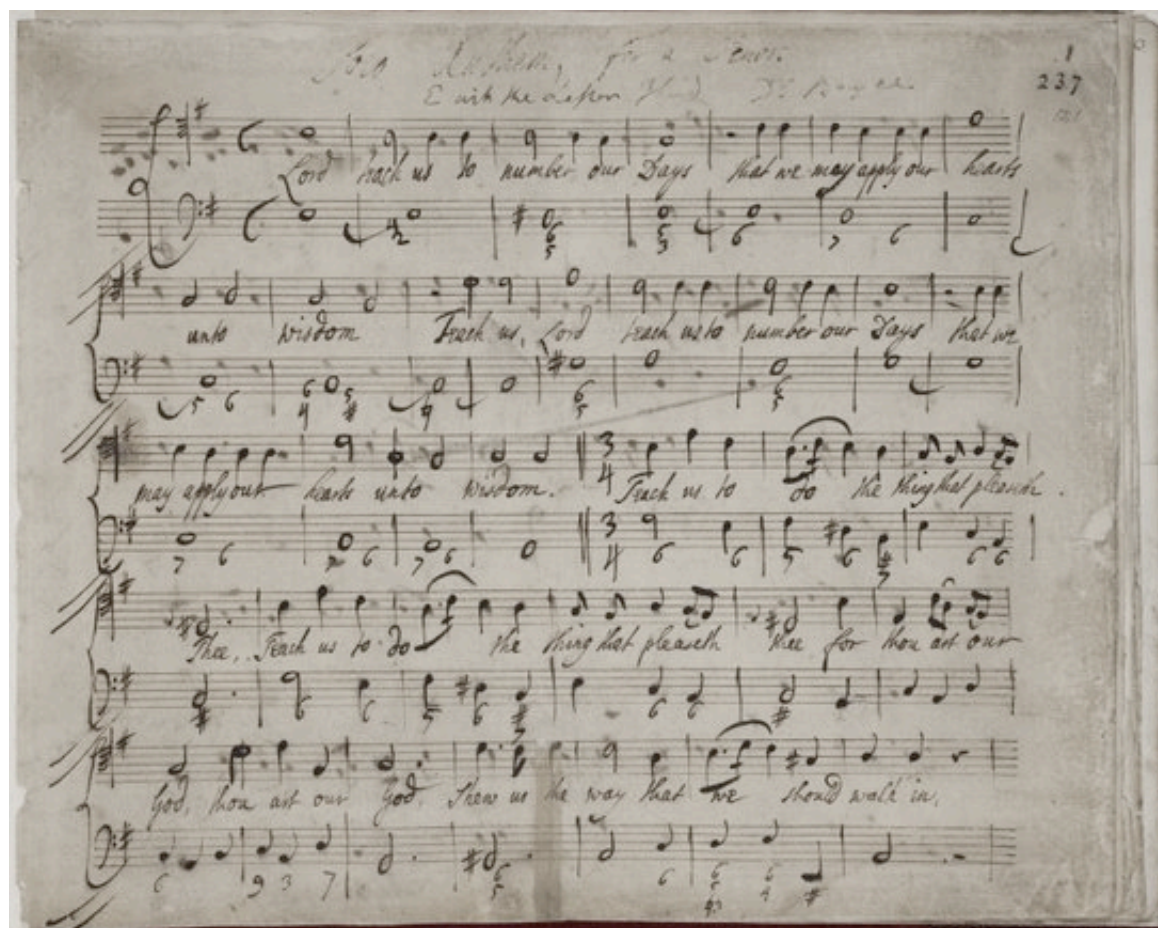 Solo Anthem, for a Tenor.
E with the lesser Third Dr Boyce.
1
237
Lord teach us to number our Days that we may apply our hearts
unto wisdom Teach us, Lord teach us to number our Days that we
may apply our hearts unto wisdom. Teach us to do the thing that pleaseth
Thee, Teach us to do the thing that pleaseth thee for thou art our
God, thou art our God. Shew us the way that we should walk in,